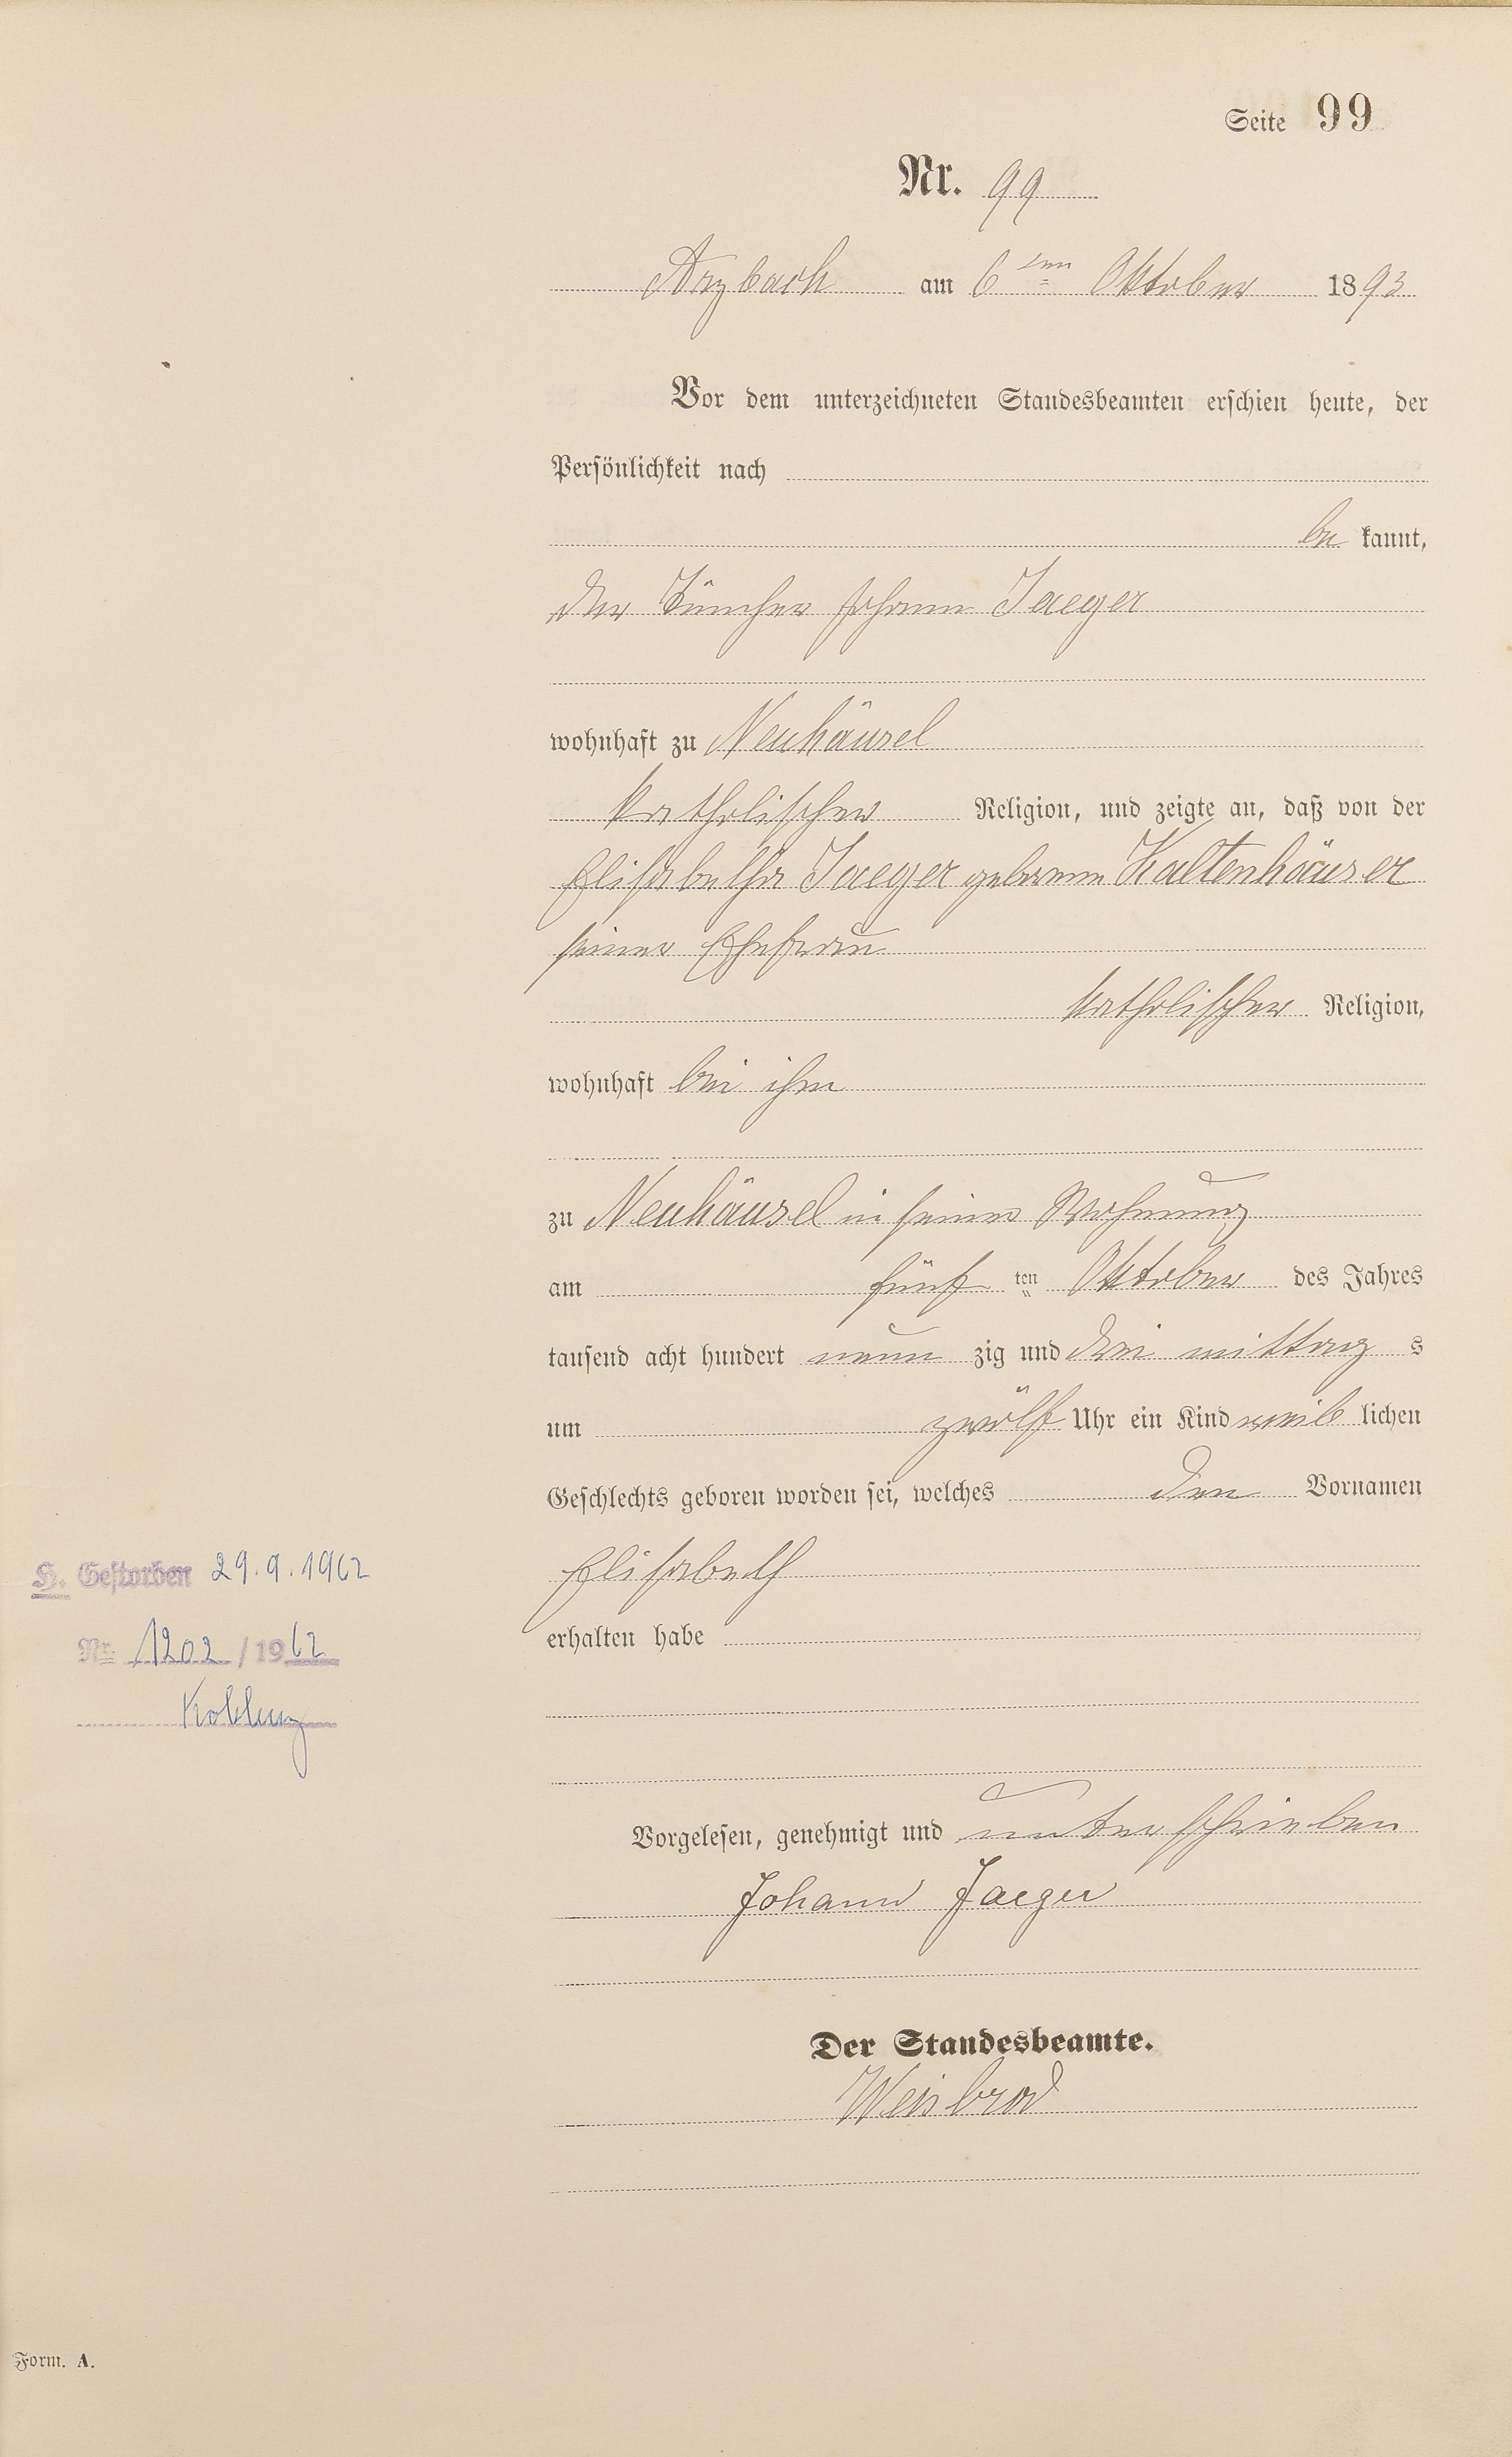 Seite 99
Nr. 99
Arzbach am 6ten Oktober 1893
Vor dem unterzeichneten Standesbeamten erschien heute, der
Persönlichkeit nach
be kannt,
der Tüncher Johann Jaeger
wohnhaft zu Neuhäusel
katholischer Religion, und zeigte an, daß von der
Elisabetha Jaeger geborene Kaltenhäuser
seiner Ehefrau
katholischer Religion,
wohnhaft bei ihm
zu Neuhäusel in seiner Wohnung
am fünf ten Oktober des Jahres
tausend acht hundert neun zig und drei mittag s
um zwölf Uhr ein Kind weib lichen
Geschlechts geboren worden sei, welches den Vornamen
Elisabeth
erhalten habe
H. Gestorben 29.9.1962
Nr. 1202 / 1962
Koblenz
Vorgelesen, genehmigt und unterschrieben
Johann Jaeger
Der Standesbeamte.
Weisbrod
Form. A.